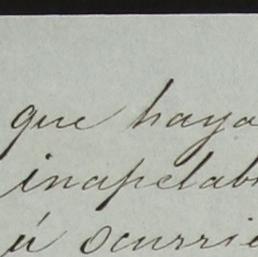 que haya
inapelab
ú ocurrie